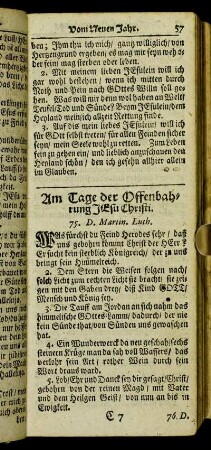 Vom Neuen Jahr. 57
ben; Ihm thu ich mich / gantz williglich / von
Hertzengrund ergeben; es mag mir seyn weh oder
der mir segn bald aus Pein.
2. Mit meinem lieben JEsulein will ich
gar wohl bestehen / wenn ich mitten durch
Noth und Pein nach GOttes Willn soll
gehn. Was will mir denn woll haben an Welt
Teufel / Tod und Sünde? Beym JEsulein dem
Heyland mein ich allzeit Rettung finde.
3. Auf dis mein liebes JEsulein will ich
für GOtt selbst treten / für allen Feinden sicher
seyn / mein Seele wohl zu retten. Zum Leben
sein zu gehen ein / und lieblich anzuschauen den
Heyland schön / den ich gesehn allhier allein
im Glauben.
Am Tage der Offenbah-
rung JEsu Christi.
75. D. Martin. Luth.
WAs fürchst du Feind Herodes sehr / daß
uns gebohren könnt Christ der HErr?
Er sucht kein sterblich Königreich / der zu uns
bringt sein Himmelreich.
2. Dem Stern die Weisen folgen nach /
solch Liecht zum rechten Liecht sie bracht: sie zei-
gen mit den Gaben drey / diß Kind GOtt /
Mensch und König sey.
3. Die Tauff am Jordan an sich nahm das
himmelische GOttes-Lamm / dadurch / der nie
kein Sünde that / von Sünden uns gewaschen
hat.
4. Ein Wunderwerck da neu geschah / sechs
steinern Krüge man da sah voll Wassers / das
verlohr sein Art / rother Wein durch sein
Wort draus ward.
5. Lob / Ehr und Danck sey dir gesagt / Christ /
gebohrn von der reinen Magd / mit Vater
und dem Heilgen Geist / von nun an bis in
Ewigkeit.
C 7 76. D.